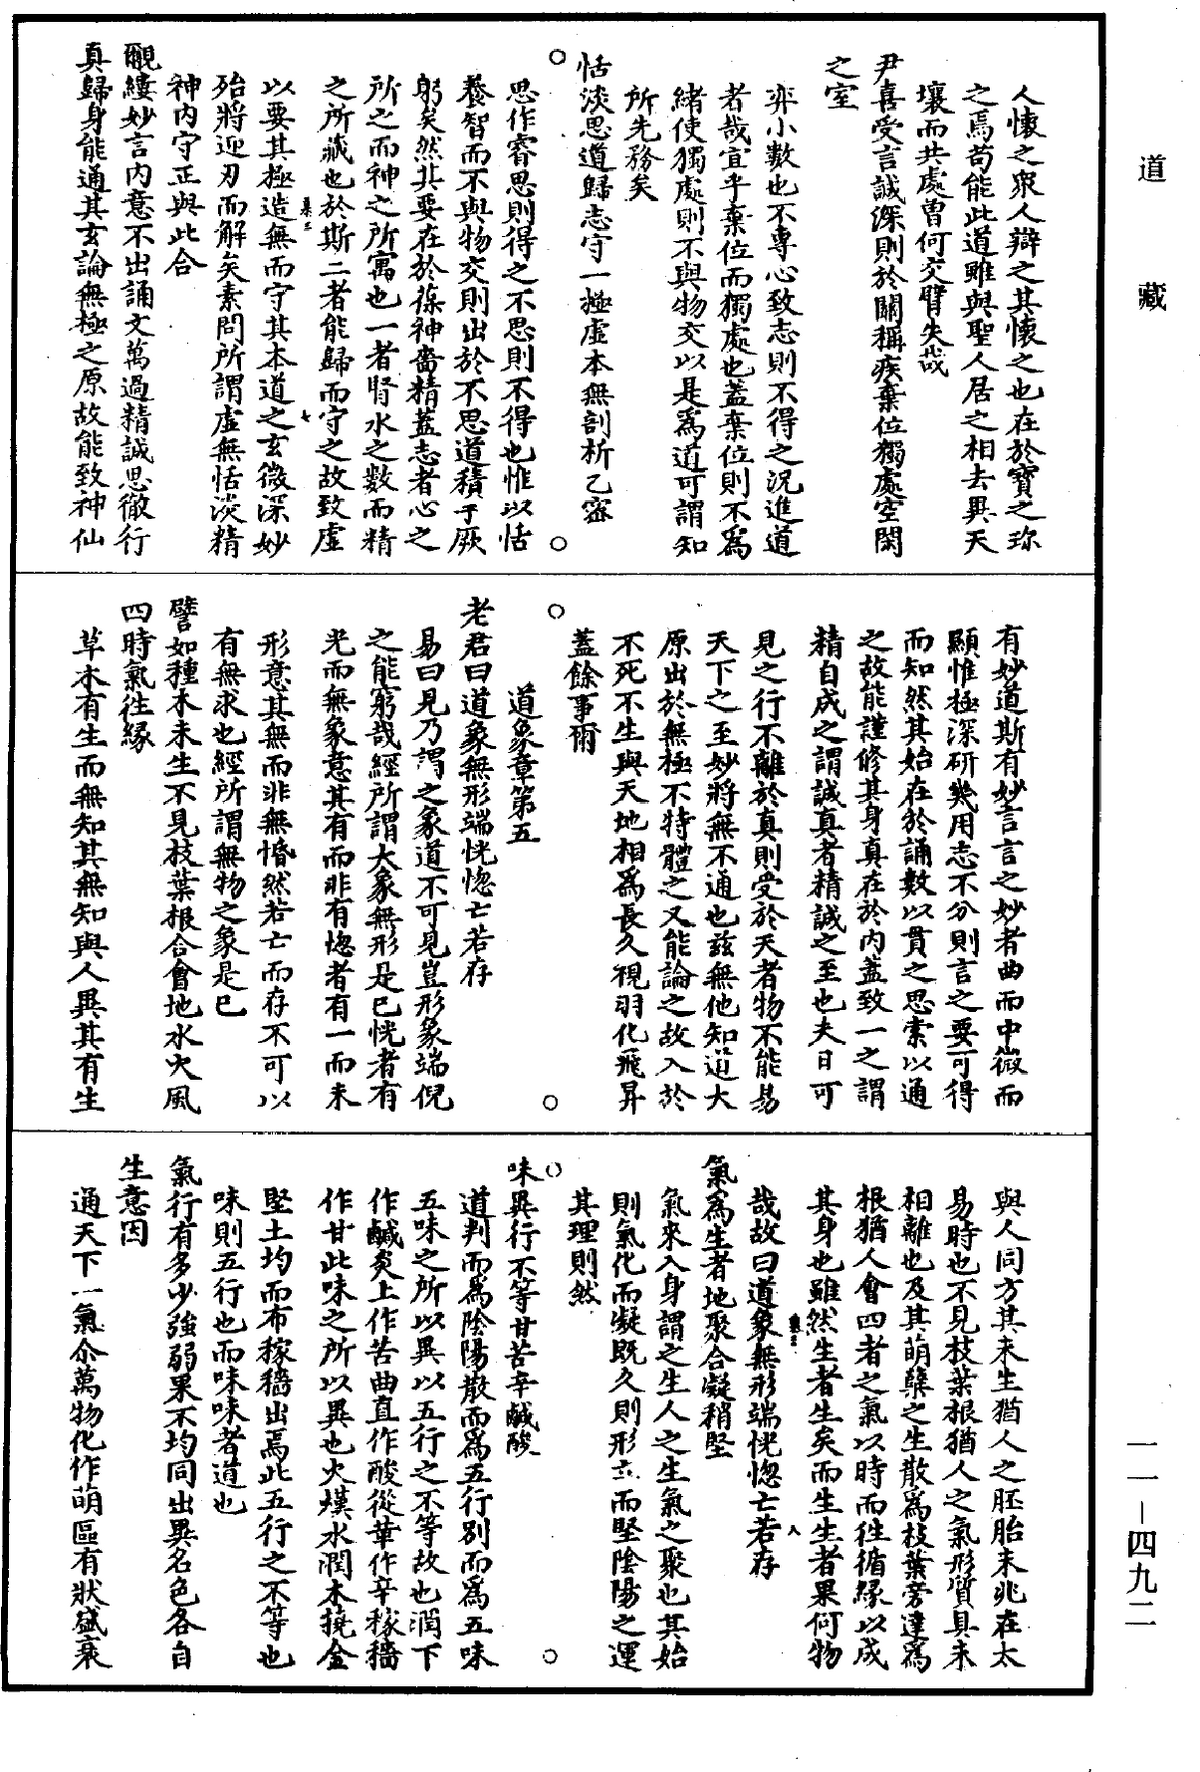 道藏
人懷之衆人辯之其懷之也在於寶之珎
之焉苟能此道雖與聖人居之相去異天
壤而共處曾何交臂失哉
尹喜受言誠深則於關稱疾棄位獨處空閑
之室
弈小數也不專心致志則不得之況進道
者哉宜乎棄位而獨處也蓋棄位則不爲
緒使獨處則不與物交以是爲道可謂知
所先務矣
恬淡思道歸志守一極虛本無剖析乙密
思作睿思則得之不思則不得也惟以恬
養智而不與物交則出於不思道積于厥
躬矣然其要在於葆神嗇精蓋志者心之
所之而神之所寓也一者腎水之數而精
之所藏也於斯二者能歸而守之故致虛
以要其極造無而守其本道之玄微深妙
殆將迎刃而解矣素問所謂虛無恬淡精
神内守正與此合
覼縷妙言内意不出誦文萬過精誠思徹行
真歸身能通其玄論無極之原故能致神仙
有妙道斯有妙言言之妙者曲而中微而
顯惟極深研幾用志不分則言之要可得
而知然其始在於誦數以貫之思索以通
之故能謹修其身真在於内蓋致一之謂
精自成之謂誠真者精誠之至也夫日可
見之行不離於真則受於天者物不能易
天下之至妙將無不通也茲無他知道大
原出於無極不特體之又能論之故入於
不死不生與天地相爲長久視羽化飛昇
蓋餘事爾
道象章第五
老君曰道象無形端恍惚亡若存
易曰見乃謂之象道不可見豈形象端倪
之能窮哉經所謂大象無形是已恍者有
光而無象意其有而非有惚者有一而未
形意其無而非無惛然若亡而存不可以
有無求也經所謂無物之象是已
譬如種木未生不見枝葉根合會地水火風
四時氣往縁
草木有生而無知其無知與人異其有生
與人同方其未生猶人之胚胎未兆在太
易時也不見枝葉根猶人之氣形質具未
相離也及其萌蘖之生散爲枝葉旁達爲
根猶人會四者之氣以時而徃循縁以成
其身也雖然生者生矣而生生者果何物
哉故曰道象無形端恍惚亡若存
氣爲生者地聚合凝稍堅
氣來入身謂之生人之生氣之聚也其始
則氣化而凝既久則形立而堅陰陽之運
其理則然
味異行不等甘苦辛鹹酸
道判而爲陰陽散而爲五行别而爲五味
五味之所以異以五行之不等故也潤下
作鹹炎上作苦曲直作酸從革作辛稼穡
作甘此味之所以異也火熯水潤木撓金
堅土均而布稼穡出焉此五行之不等也
味則五行也而味味者道也
氣行有多少強弱果不均同出異名色各自
生意因
通天下一氣尒萬物化作萌區有狀盛衰
一一—四九二